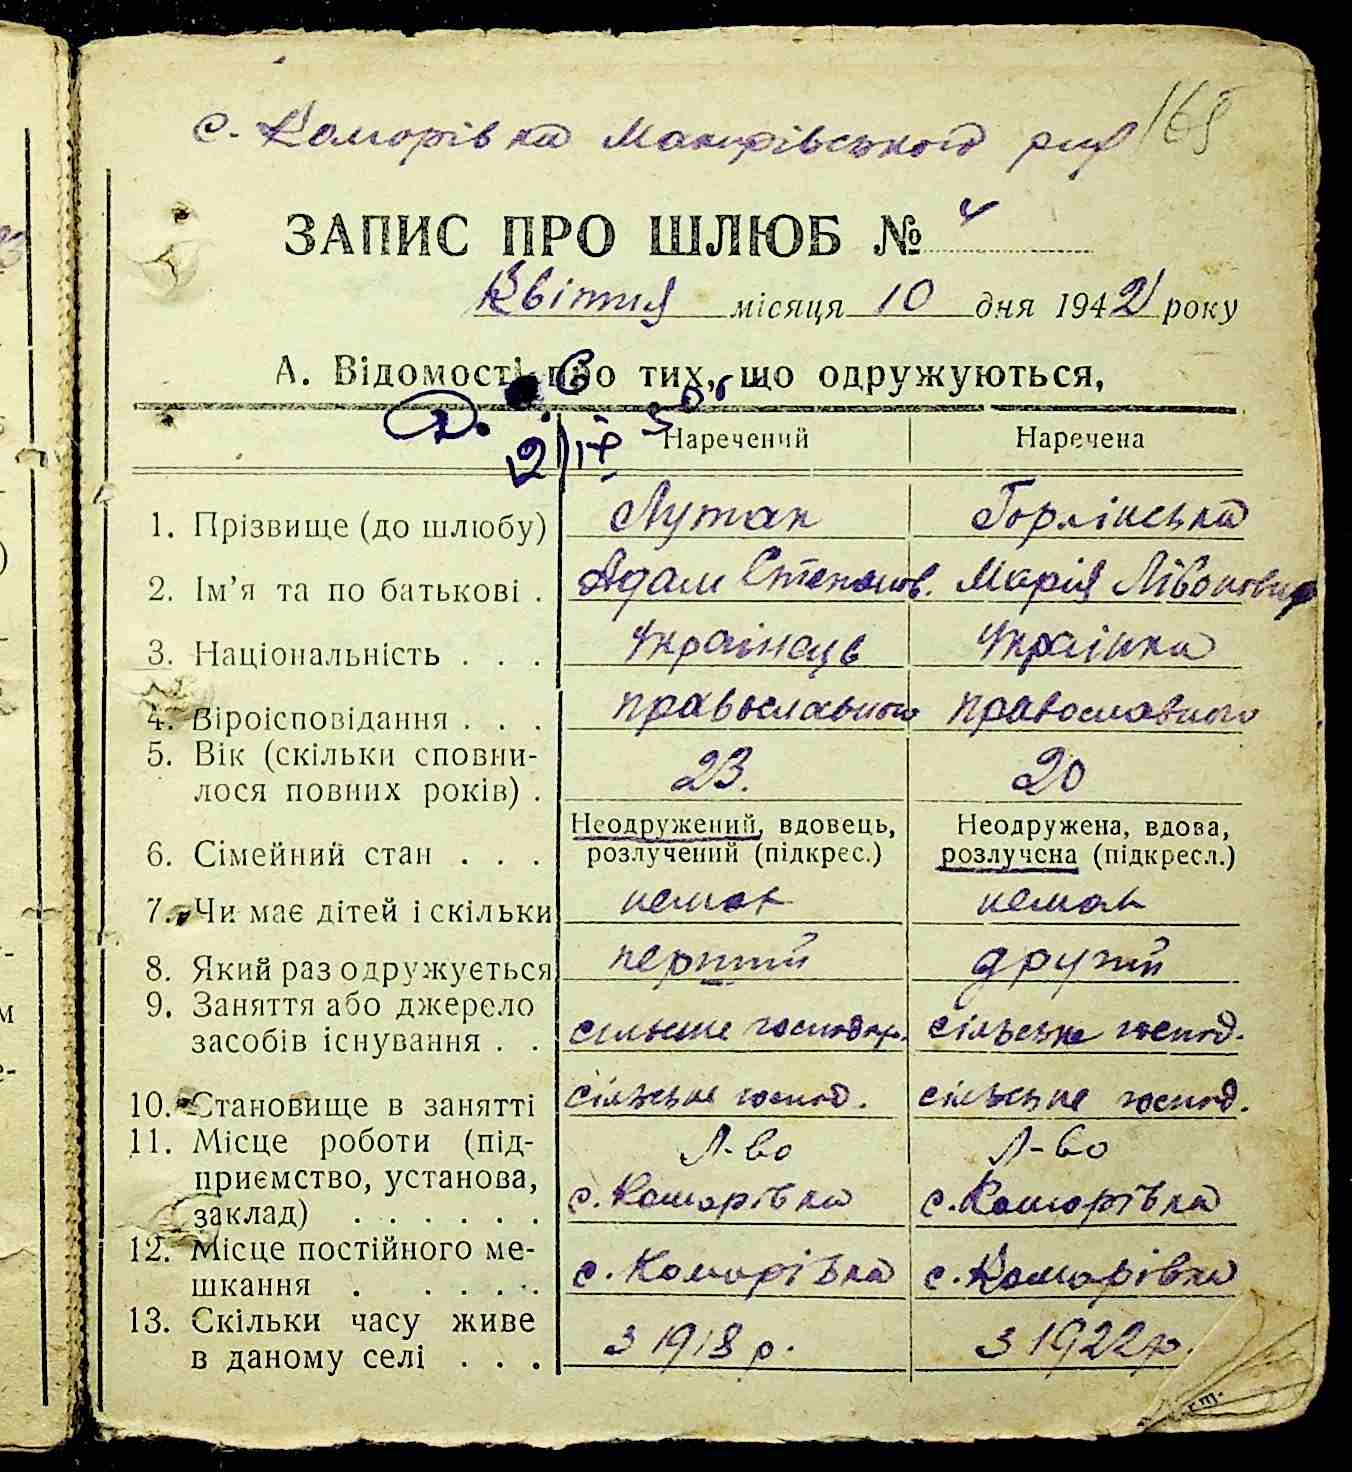 165
с. Коморівка Макарівського р-ну
ЗАПИС ПРО ШЛЮБ № 4
Квітня місяця 10 дня 1942 року
А. Відомості про тих, що одружуються,
Наречений Наречена
1. Прізвище (до шлюбу) Лутак Горлінська
2. Ім'я та по батькові . Адам Степанов. Марія Лівоновна
3. Національність . . . Українець Українка
4. Віроісповідання . . . православного православного
5. Вік (скільки сповни-
лося повних років) . 23. 20
Неодружений, вдовець, Неодружена, вдова,
6. Сімейний стан . . . розлучений (підкрес.) розлучена (підкресл.)
7. Чи має дітей і скільки немає немає
8. Який раз одружується перший другий
9. Заняття або джерело
засобів існування . . сільське господар. сільське господ.
10. Становище в занятті сільське господ. сільське господ.
11. Місце роботи (під- Л-во Л-во
приємство, установа, с. Комарівка с. Комарівка
заклад) . . . . . .
12. Місце постійного ме-
шкання . . . . . с. Комарівка с. Комарівка
13. Скільки часу живе
в даному селі . . . з 1918 р. з 1922 р.